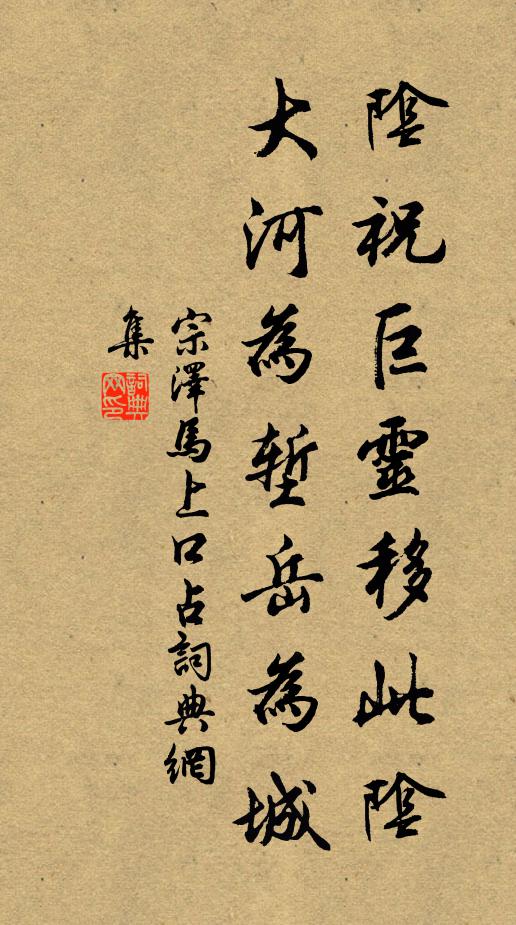 陰祝巨靈移此陰
大河為塹岳為城
宗澤馬上口占詞典網
集
詞典
網印